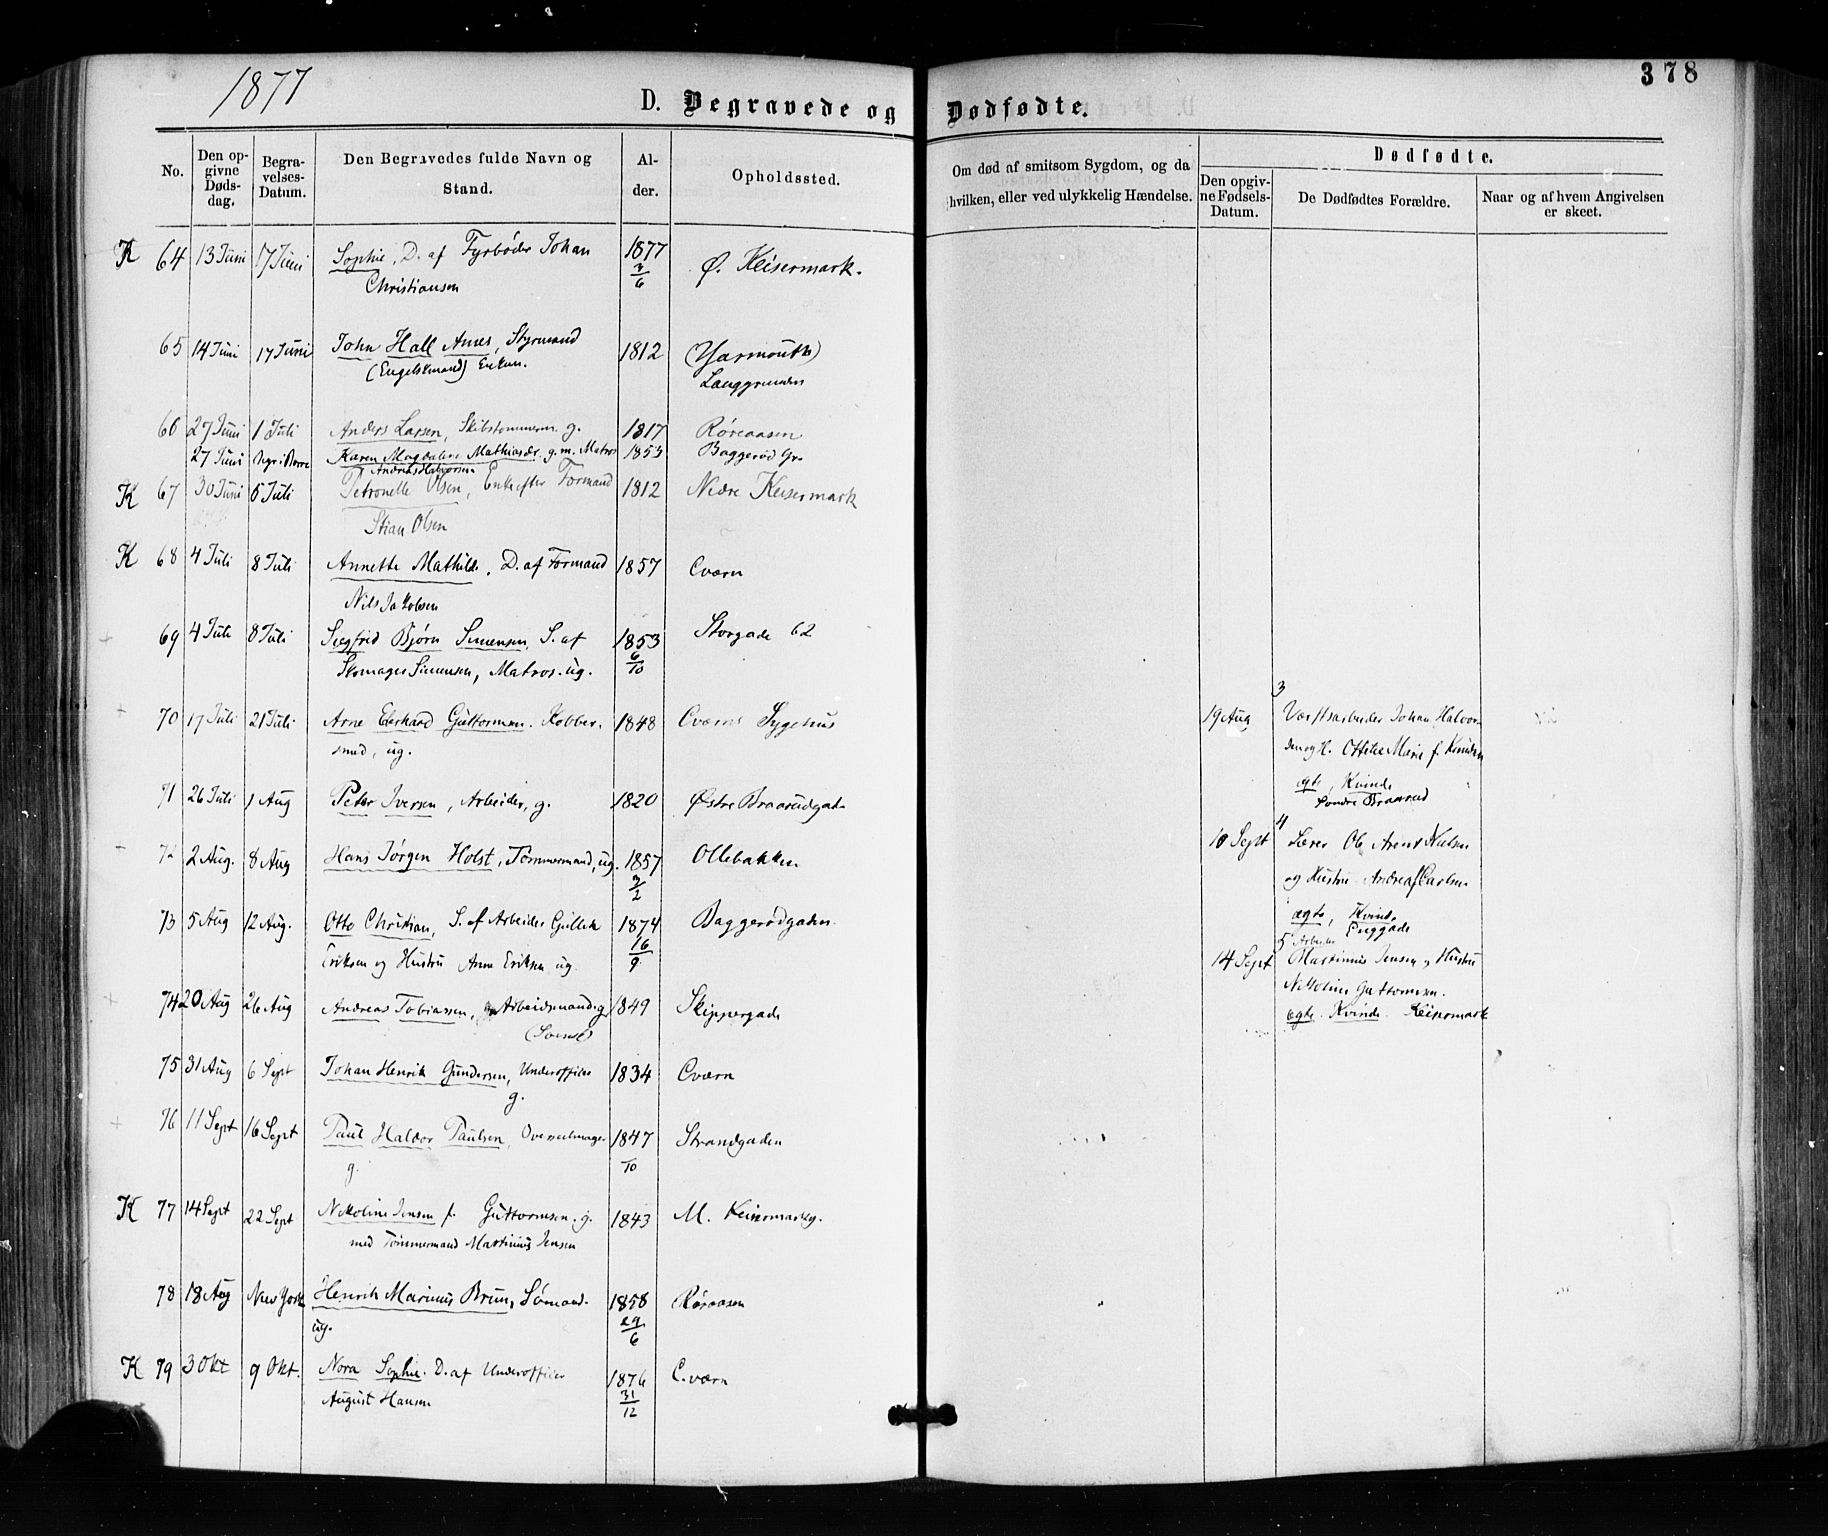 1877
378
D. Begravede og Dødfødte.
No.
Den opgivne Dødsdag.
Begravelses-Datum.
Den Begravedes fulde Navn og Stand.
Alder.
Opholdssted.
Om død af smitsom Sygdom, og da hvilken, eller ved ulykkelig Hændelse.
Dødfødte.
Den opgivne Fødsels-Datum.
De Dødfødtes Forældre.
Naar og af hvem Angivelsen er skeet.
K 64 13 Juni 17 Juni Sophie, D. af Fyrbøder Johan 1877 3/6 Ø. Keisermark.
Christiansen
65 14 Juni 17 Juni John Hall Ames, Styrmand 1812 (Yarmouth)
(Engelskmand) Enkem. Langgrunden
66 27 Juni 1 Juli Anders Larsen, Skibstømmerm. g. 1817 Røreaasen
27 Juni Karen Magdalene Mathiasdr. g. m. Matros 1853 Baggerød Gr.
Andreas Halvorsen
K 67 30 Juni 5 Juli Petronelle Olsen, Enke efter Formand 1812 Nedre Keisermark
Stian Olsen
K 68 4 Juli 8 Juli Annette Mathilde, D. af Formand 1857 Cværn
Nils Jakobsen
69 4 Juli 8 Juli Siegfrid Bjørn Simensen, S. af 1853 6/10 Storgade 62
Skomager Simensen, Matros. ug.
70 17 Juli 21 Juli Arne Eberhard Guttormsen. Kobber- 1848 Cværns Sygehus
smed, ug.
71 26 Juli 1 Aug Peter Iversen, Arbeider, g. 1820 Østre Braarudgat.
72 2 Aug. 8 Aug Hans Jørgen Holst, Tømmermand, ug. 1857 3/2 Ollebakken
73 5 Aug 12 Aug. Otto Christian, S. af Arbeider Gullik 1874 16/9 Baggerødgaden.
Eriksen og Hustru Anne Eriksen ug.
74 20 Aug 26 Aug Andreas Tobiassen, Arbeidsmand g 1849 Skippergade
75 31 Aug 6 Sept Johan Henrik Gundersen, Underofficer 1834 Cværn
g.
76 11 Sept 16 Sept Paul Haldor Paulsen, 1847 /10 Strandgaden
g.
K 77 14 Sept 22 Sept Nikoline Jensen f. Guttormsen. g. 1843 M. Keisermarkg.
med Tømmermand Martinius Jensen
78 18 Aug New York Henrik Marinus Brun, Sømand. 1858 29/6 Røraasen
ug.
K 79 3 Okt 9 Okt. Nora Sophie. D. af Underofficer 1876 31/12 Cværn
August Hansen
3
19 Aug Værftsarbeider Johan Halvor-
sen og H. Ottilie Marie f. Knudsen
ægte, Kvinde
Søndre Braarud
4
10 Sept Lærer Ole Arent Nielsen
og Hustru Andrea f Carlsen
ægte, Kvinde
Enggade
5 Arbeider
14 Sept Martinius Jensen og Hustru
Nikoline Guttormsen.
ægte. Kvinde. Keisermark